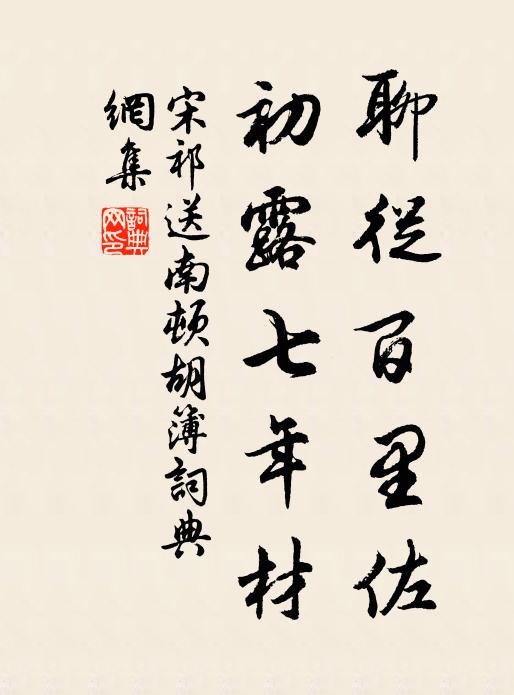 聊從百里佐
初露七年材
宋祁送南頓胡簿詞典
網集
詞典
网印